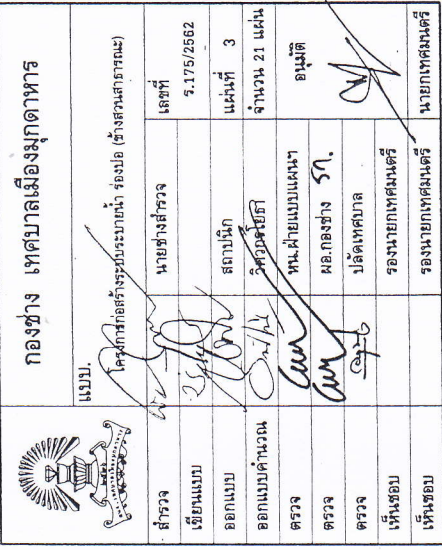 กองช่าง เทศบาลเมืองมุกดาหาร
แบบ.
โครงการก่อสร้างระบบระบายน้ำ ร่องปอ (ข้างสวนสาธารณะ)
สำรวจ นายช่างสำรวจ เลขที่
เขียนแบบ ร.175/2562
ออกแบบ สถาปนิก แผ่นที่ 3
ออกแบบคำนวณ วิศวกรโยธา จำนวน 21 แผ่น
ตรวจ หน.ฝ่ายแบบแผนฯ อนุมัติ
ตรวจ ผอ.กองช่าง รก.
ตรวจ ปลัดเทศบาล
เห็นชอบ รองนายกเทศมนตรี
เห็นชอบ รองนายกเทศมนตรี นายกเทศมนตรี